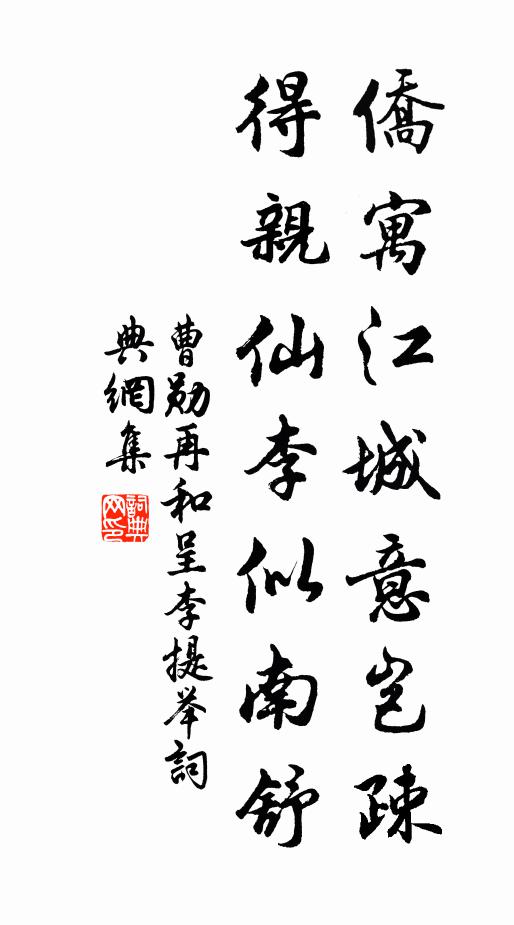 僑寓江城意豈疎
得親仙李似南舒
曹勛再和呈李提举詞
典網集
詞典網印